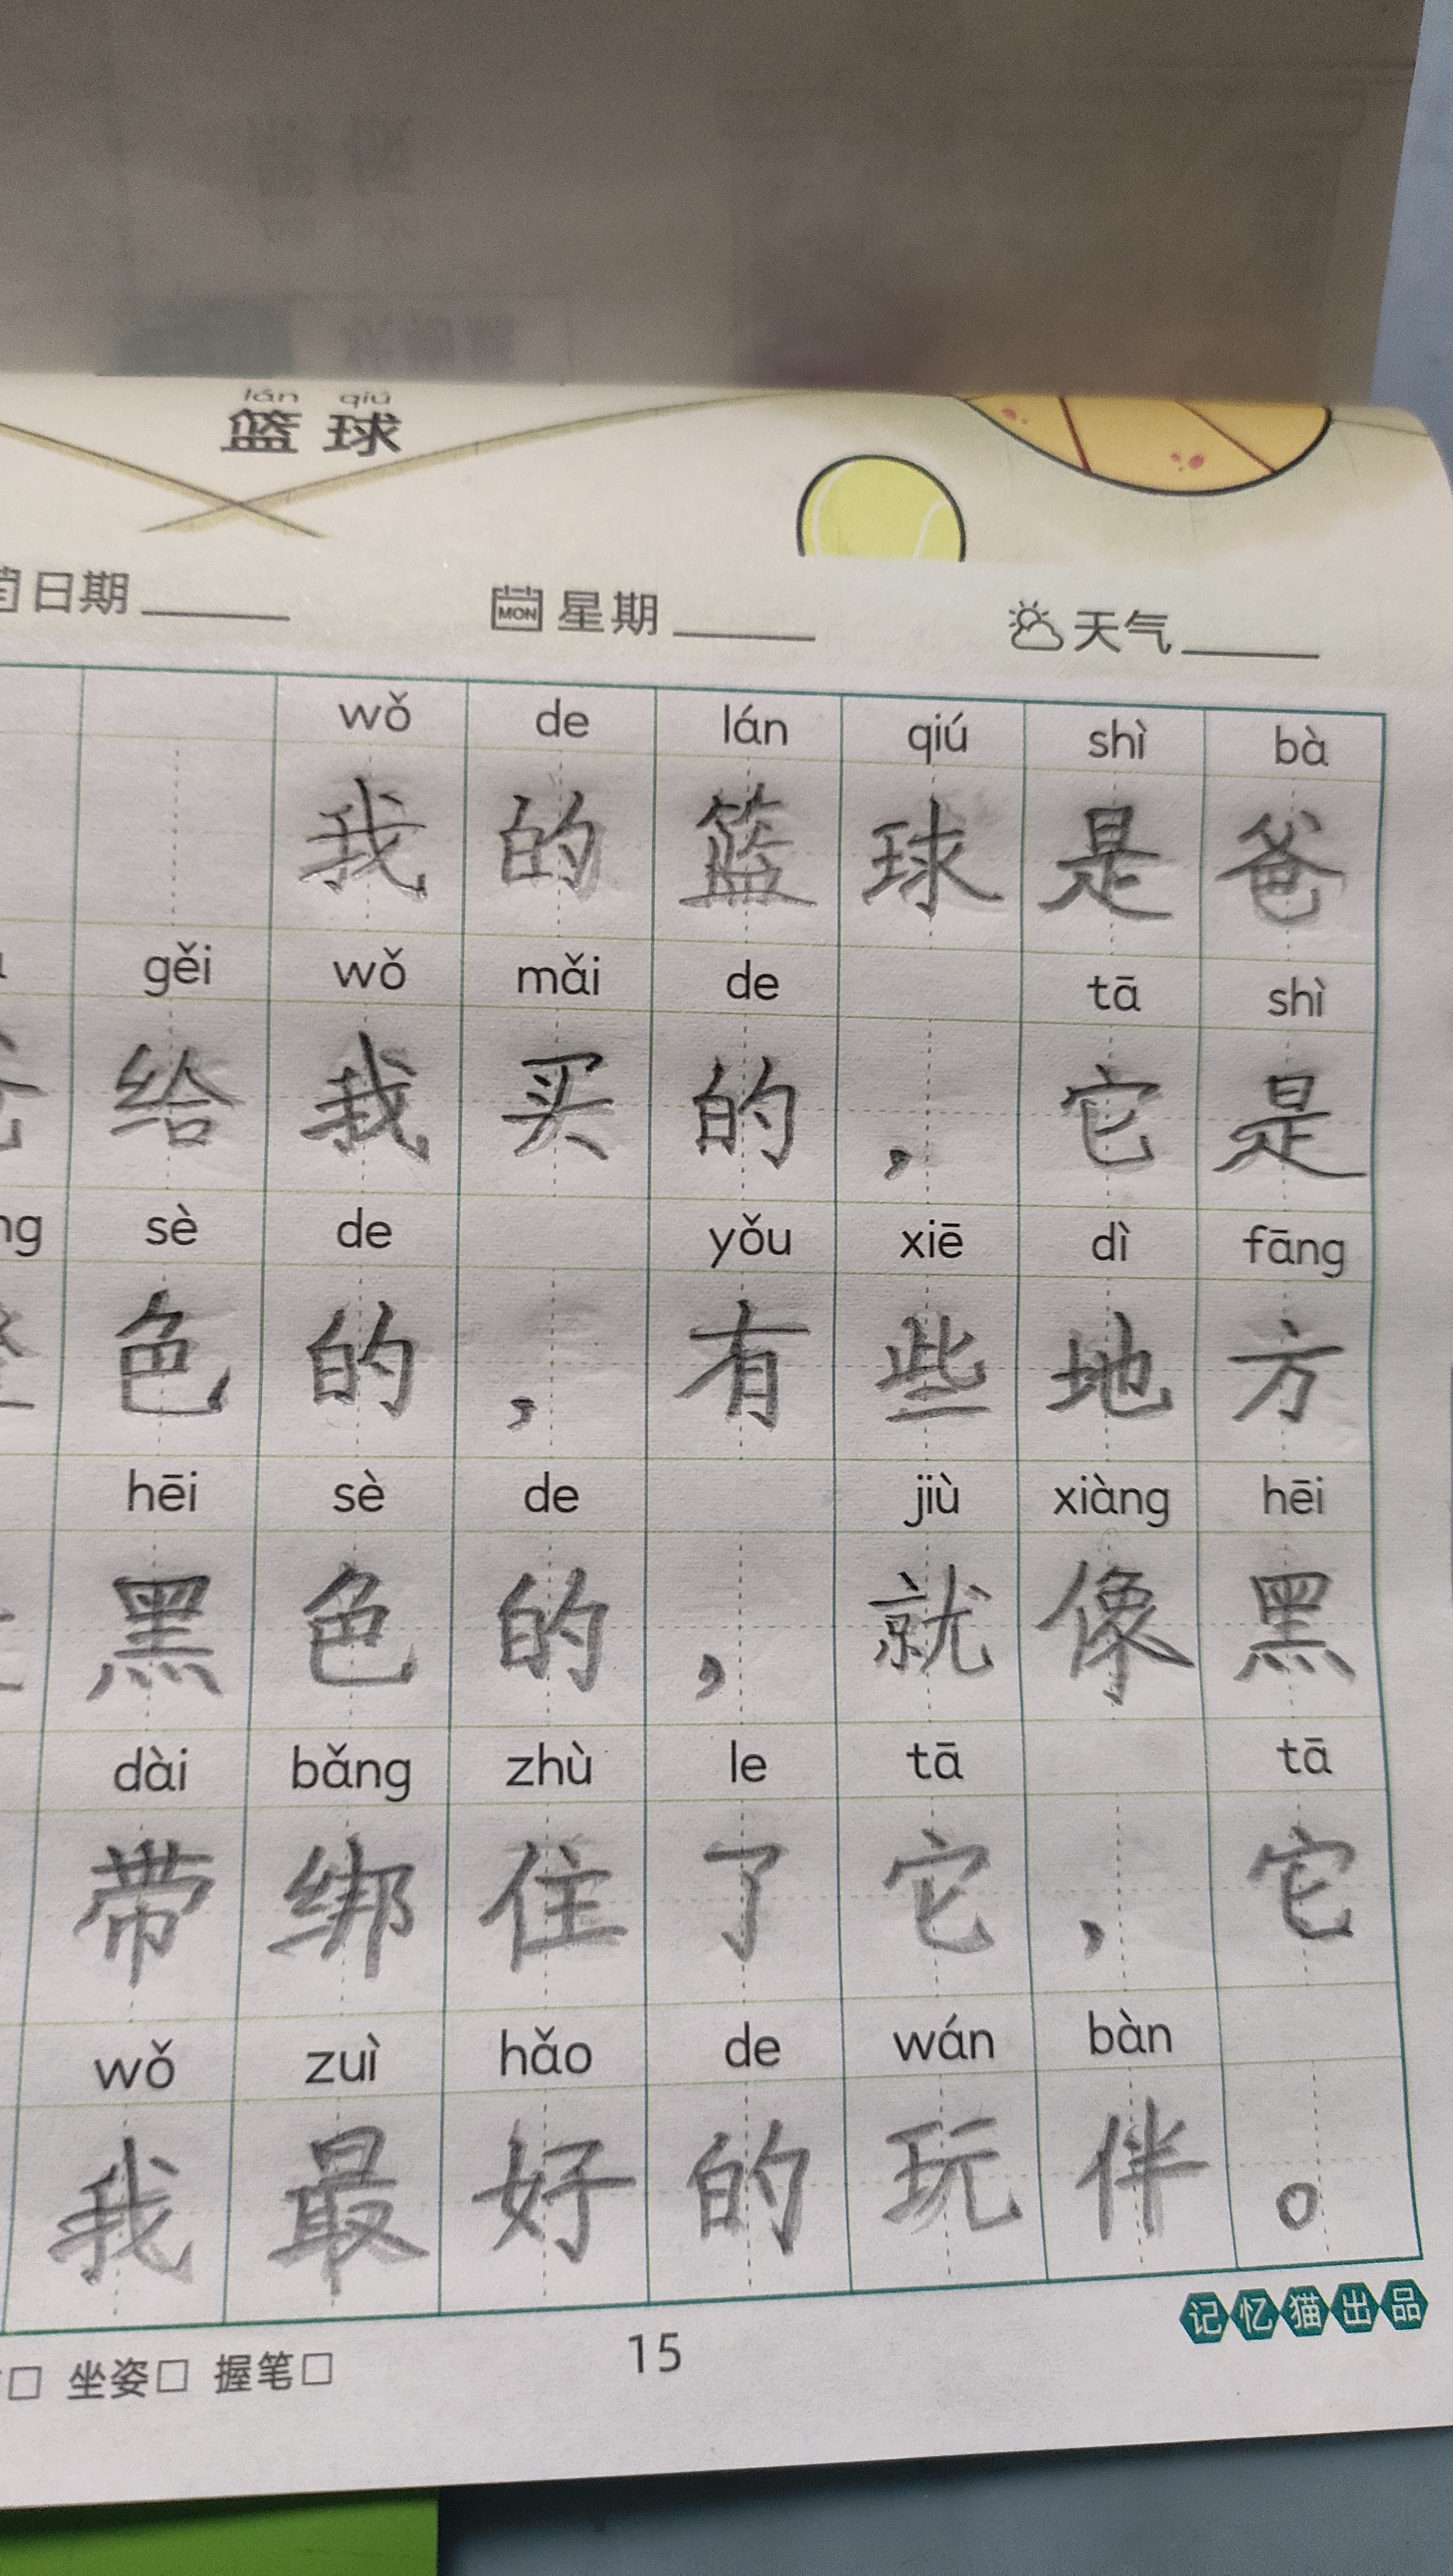 lán qiú
篮球
日期
MON 星期
天气
wǒ de lán qiú shì bà
我的篮球是爸
gěi wǒ mǎi de tā shì
给我买的，它是
ng sè de yǒu xiē dì fāng
色的，有些地方
hēi sè de jiù xiàng hēi
黑色的，就像黑
dài bǎng zhù le tā tā
带绑住了它，它
wǒ zuì hǎo de wán bàn
我最好的玩伴。
坐姿□ 握笔□
15
记忆猫出品